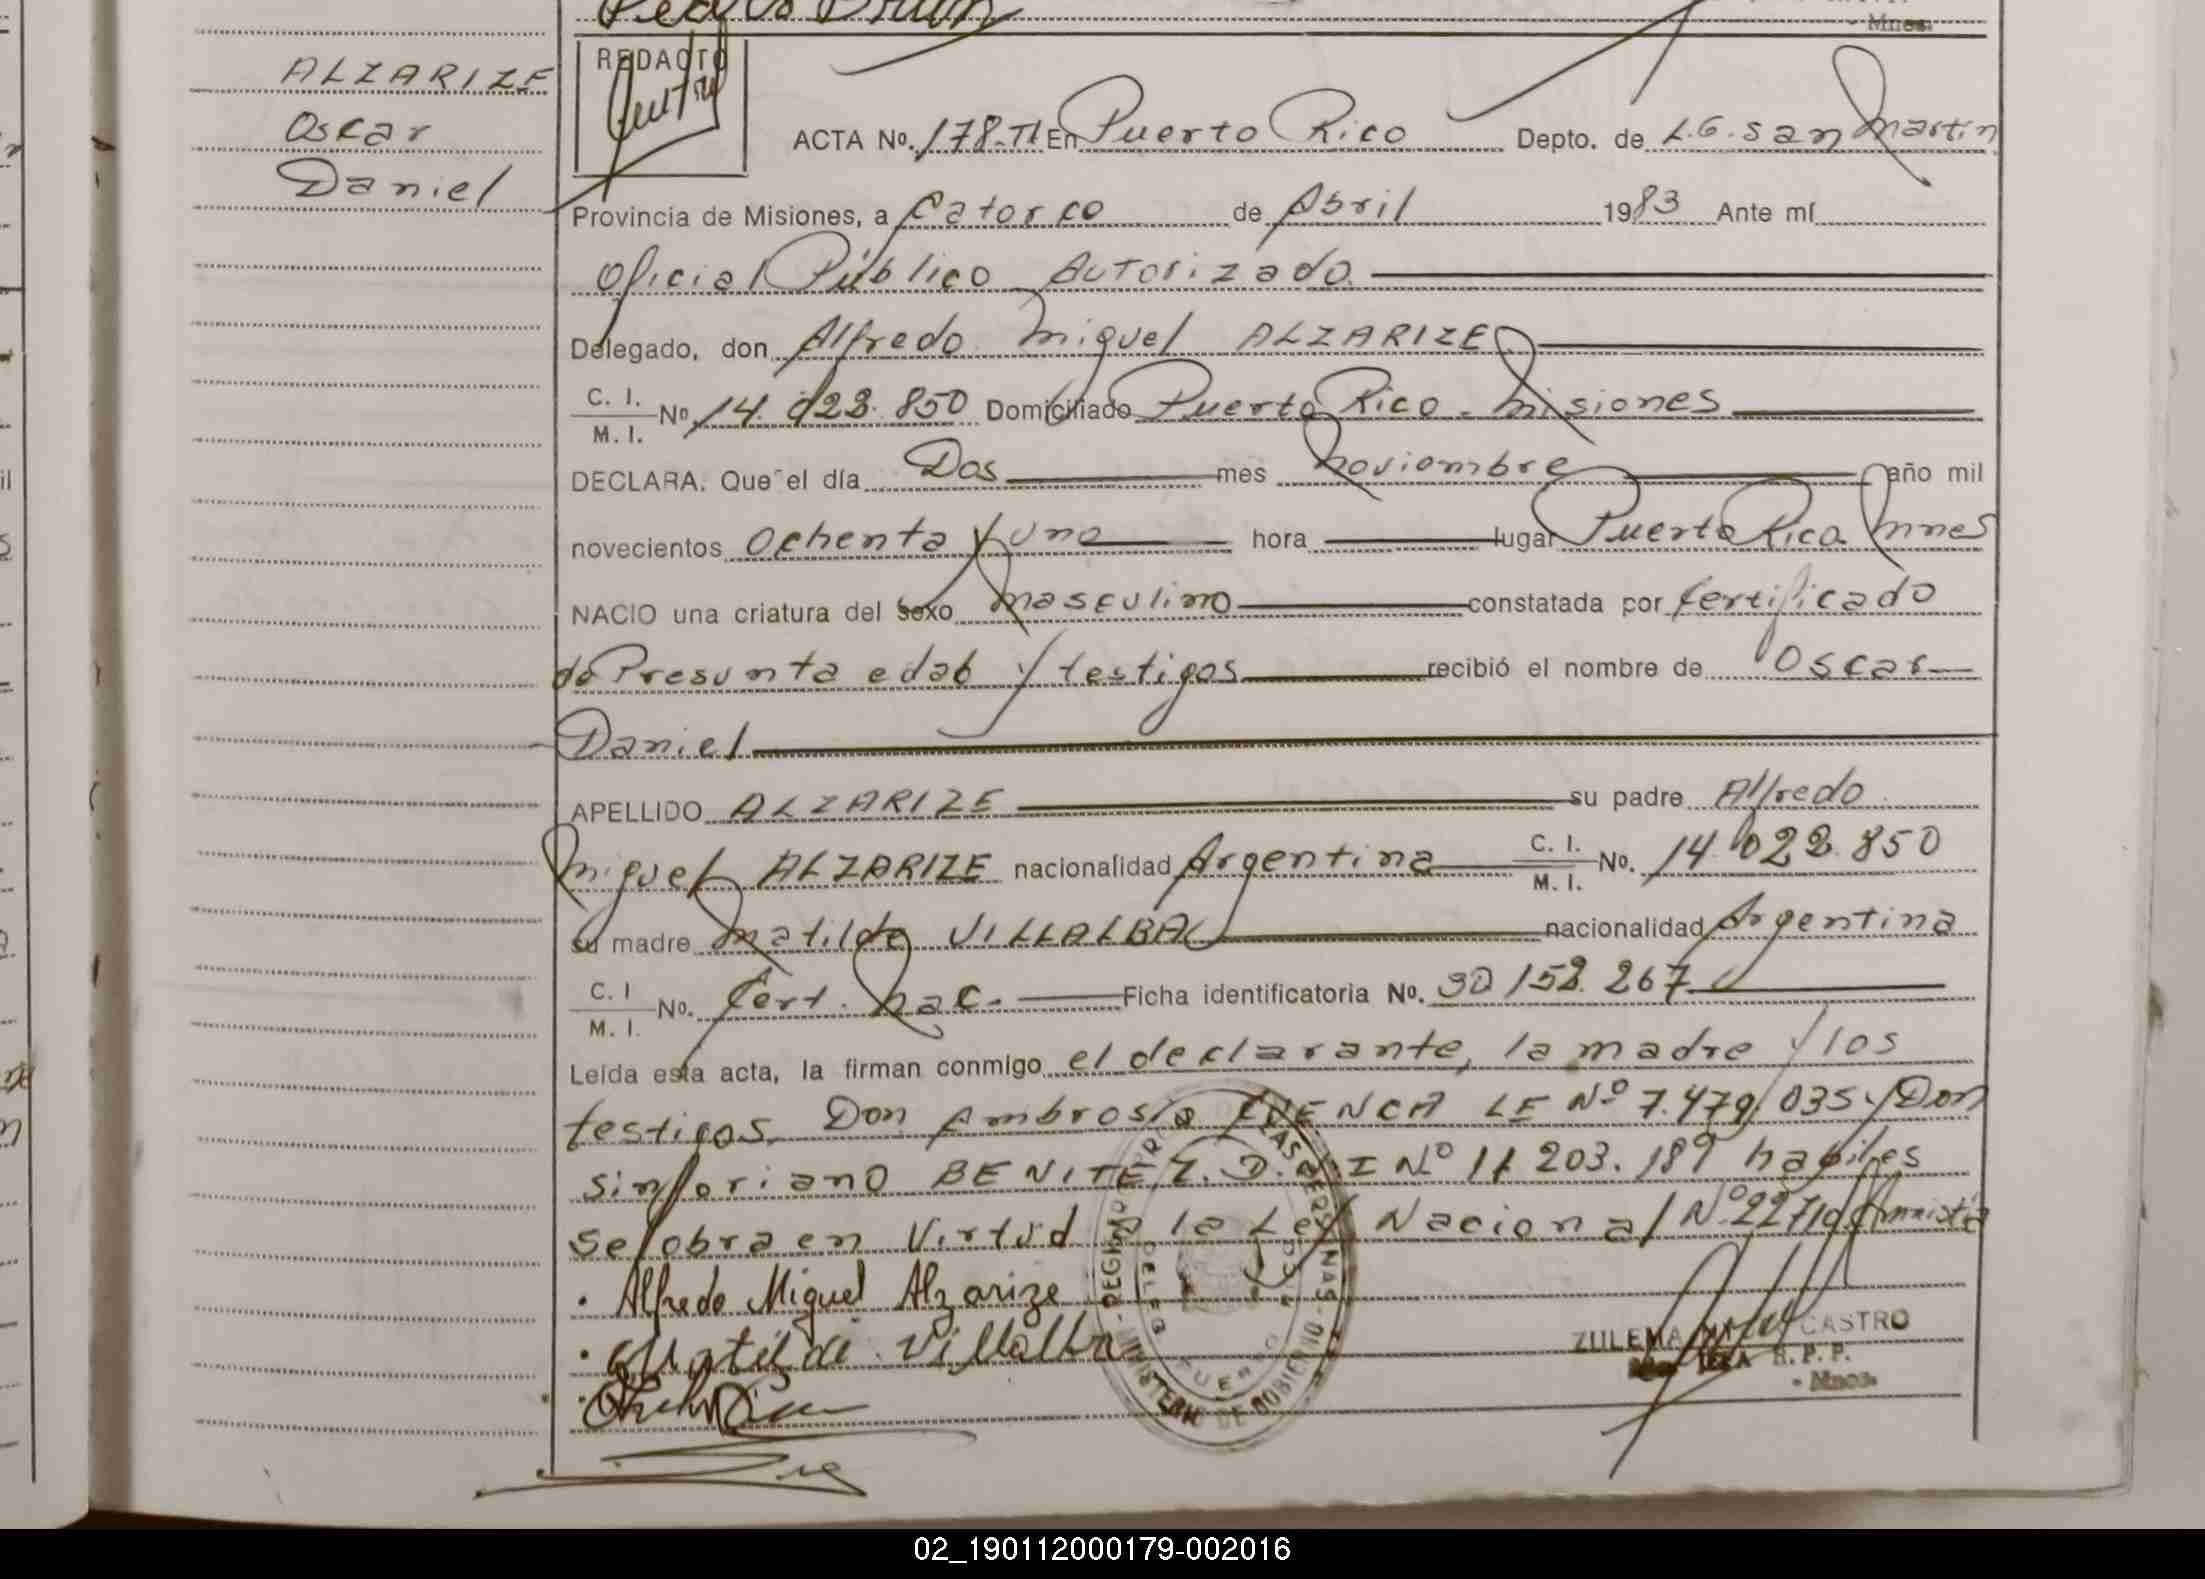 Pedro Brun
- Mnes.
ALZARIZE
Oscar
Daniel
REDACTO
ACTA Nº. 178-TI En Puerto Rico Depto. de L.G. San Martin
Provincia de Misiones, a Catorce de Abril 1983 Ante mí
Oficial Público Autorizado
Delegado, don Alfredo Miguel ALZARIZE
C. I. M. I. Nº 14.022.850 Domiciliado Puerto Rico - Misiones
DECLARA. Que el día Dos mes Noviembre año mil
novecientos Ochenta y uno hora lugar Puerto Rico Mnes
NACIO una criatura del sexo Masculino constatada por Certificado
de Presunta edad y testigos recibió el nombre de Oscar
Daniel
APELLIDO ALZARIZE su padre Alfredo
Miguel ALZARIZE nacionalidad Argentina C. I. M. I. Nº. 14.022.850
su madre Matilde VILLALBA nacionalidad Argentina
C. I M. I. Nº. Cert. Nac. Ficha identificatoria Nº. 30.152.267
Leída esta acta, la firman conmigo el declarante, la madre y los
testigos Don Ambrosio CUENCA LE Nº 7.479.035 y Don
Sinforiano BENITEZ. D.N.I Nº 11.203.189 habiles
se labra en Virtud a la Ley Nacional Nº 22710 Amnistia
Alfredo Miguel Alzarize
Matilde Villalba
ZULEMA CASTRO
R. P. P.
- Mnes.
MINISTERIO DE GOBIERNO - REGISTRO PROV. DE LAS PERSONAS
02_190112000179-002016